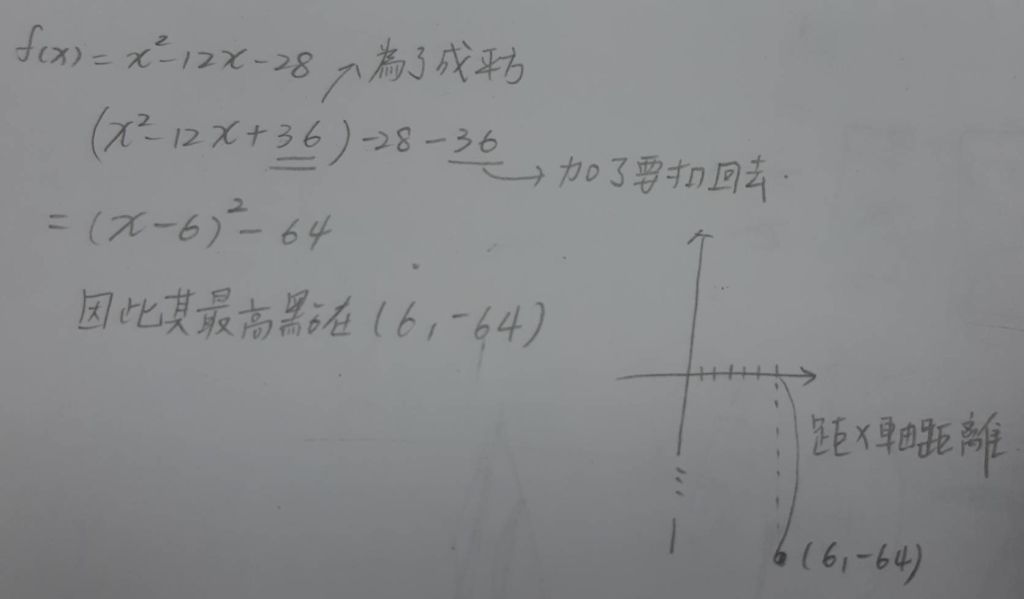 f(x) = x²-12x-28 ↗ 為了成平方
(x²-12x+36)-28-36
→ 加了要扣回去.
= (x-6)²-64
因此其最高點在(6,-64)
距x軸距離
(6,-64)